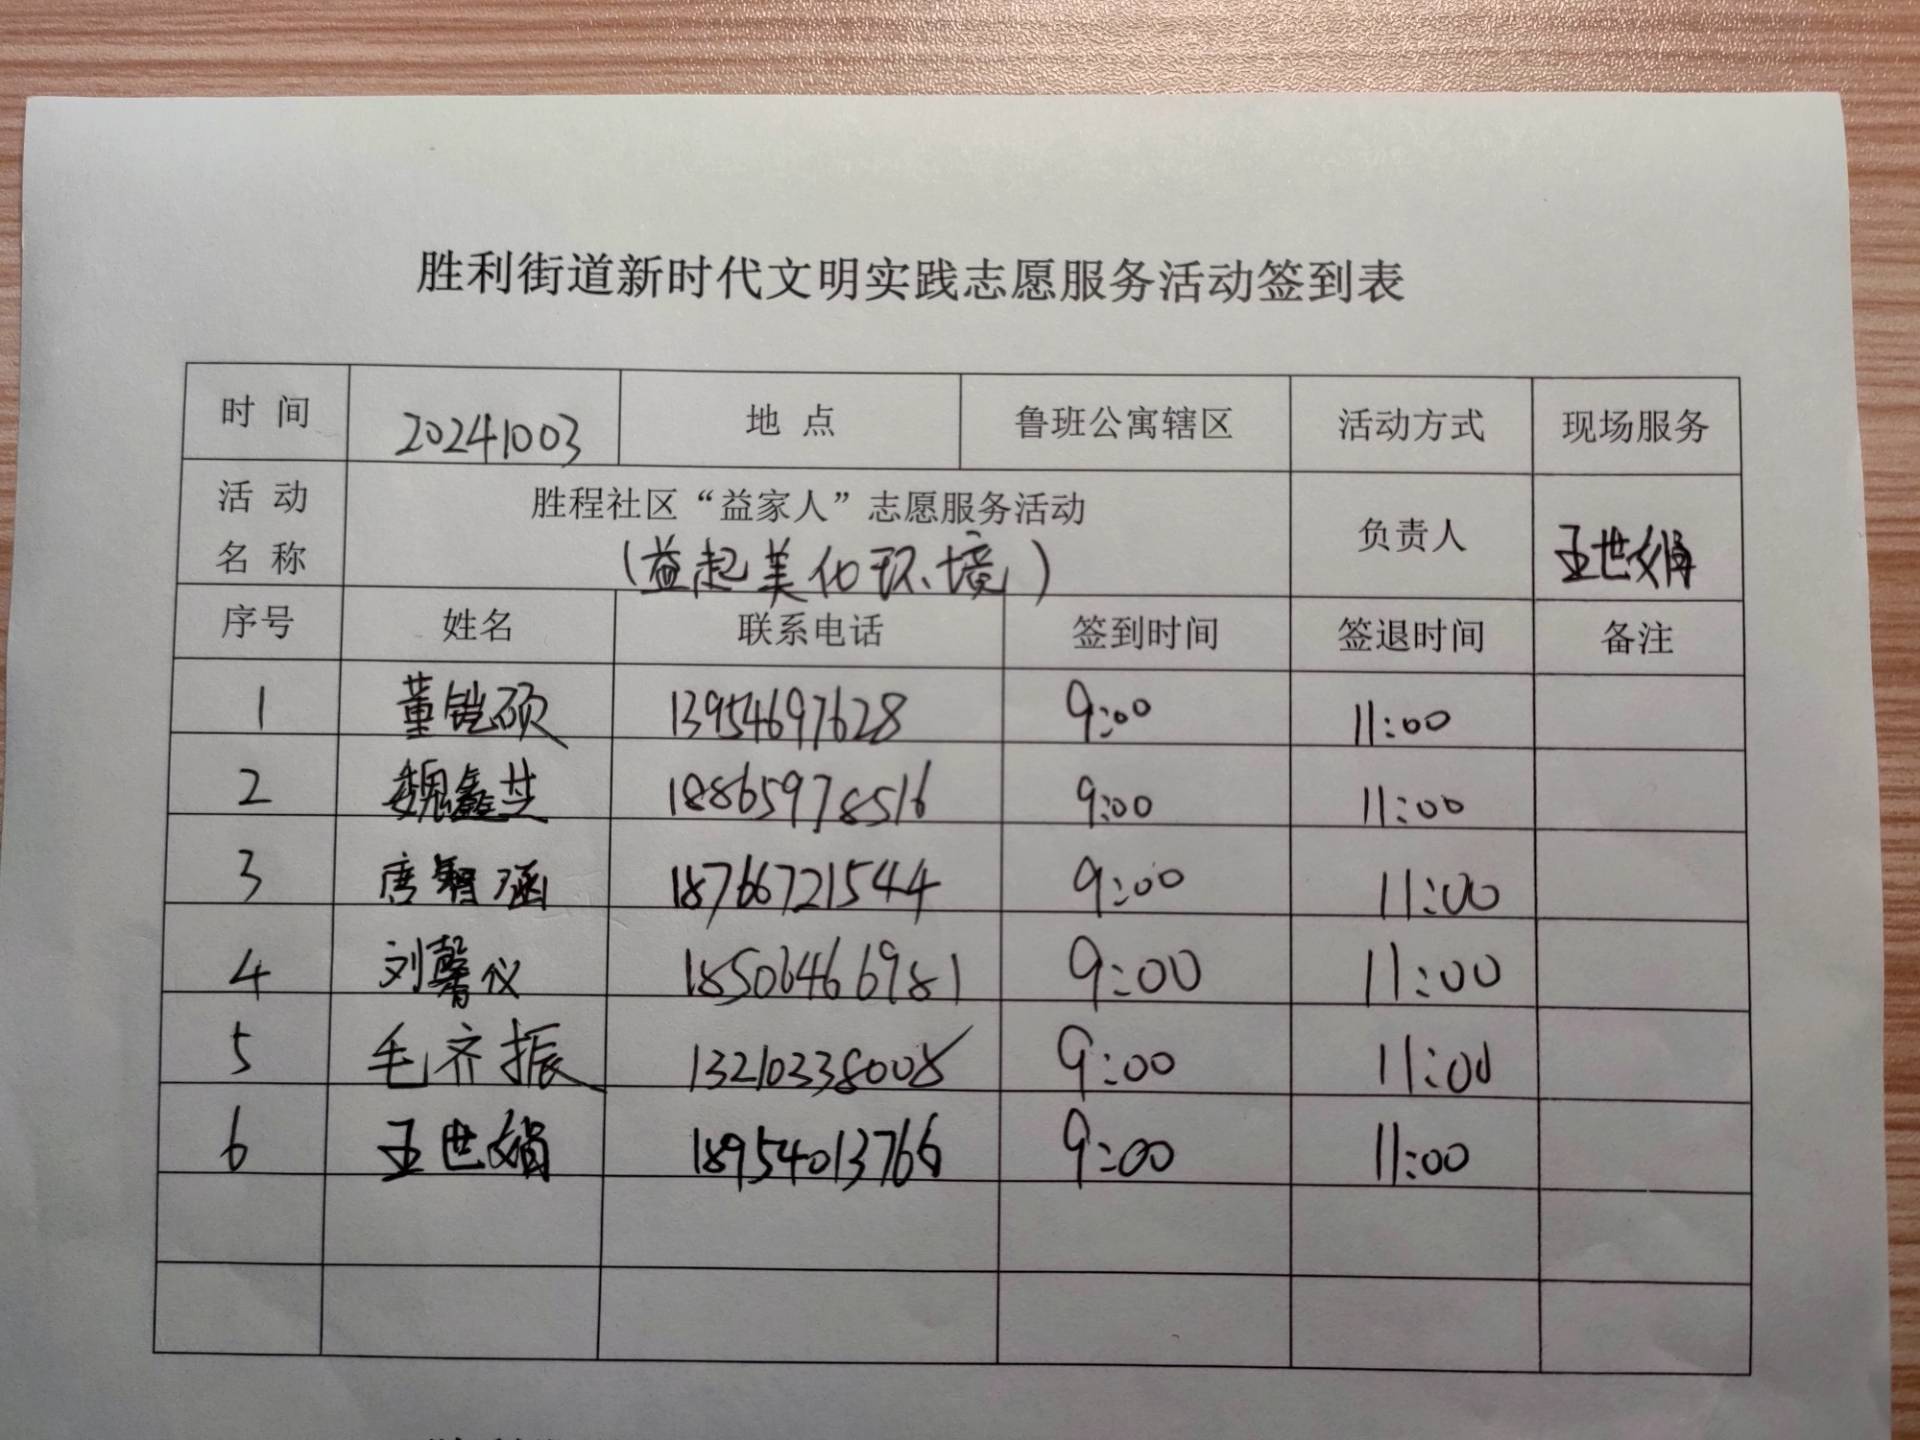 胜利街道新时代文明实践志愿服务活动签到表
时 间 20241003 地 点 鲁班公寓辖区 活动方式 现场服务
活 动 名 称 胜程社区“益家人”志愿服务活动 负责人 王世娟
（益起美化环境）
序号 姓名 联系电话 签到时间 签退时间 备注
1 董铠硕 13954697628 9:00 11:00
2 魏鑫芷 18865978516 9:00 11:00
3 唐智涵 18766721544 9:00 11:00
4 刘馨仪 18506466981 9:00 11:00
5 毛齐振 13210338008 9:00 11:00
6 王世娟 18954013766 9:00 11:00